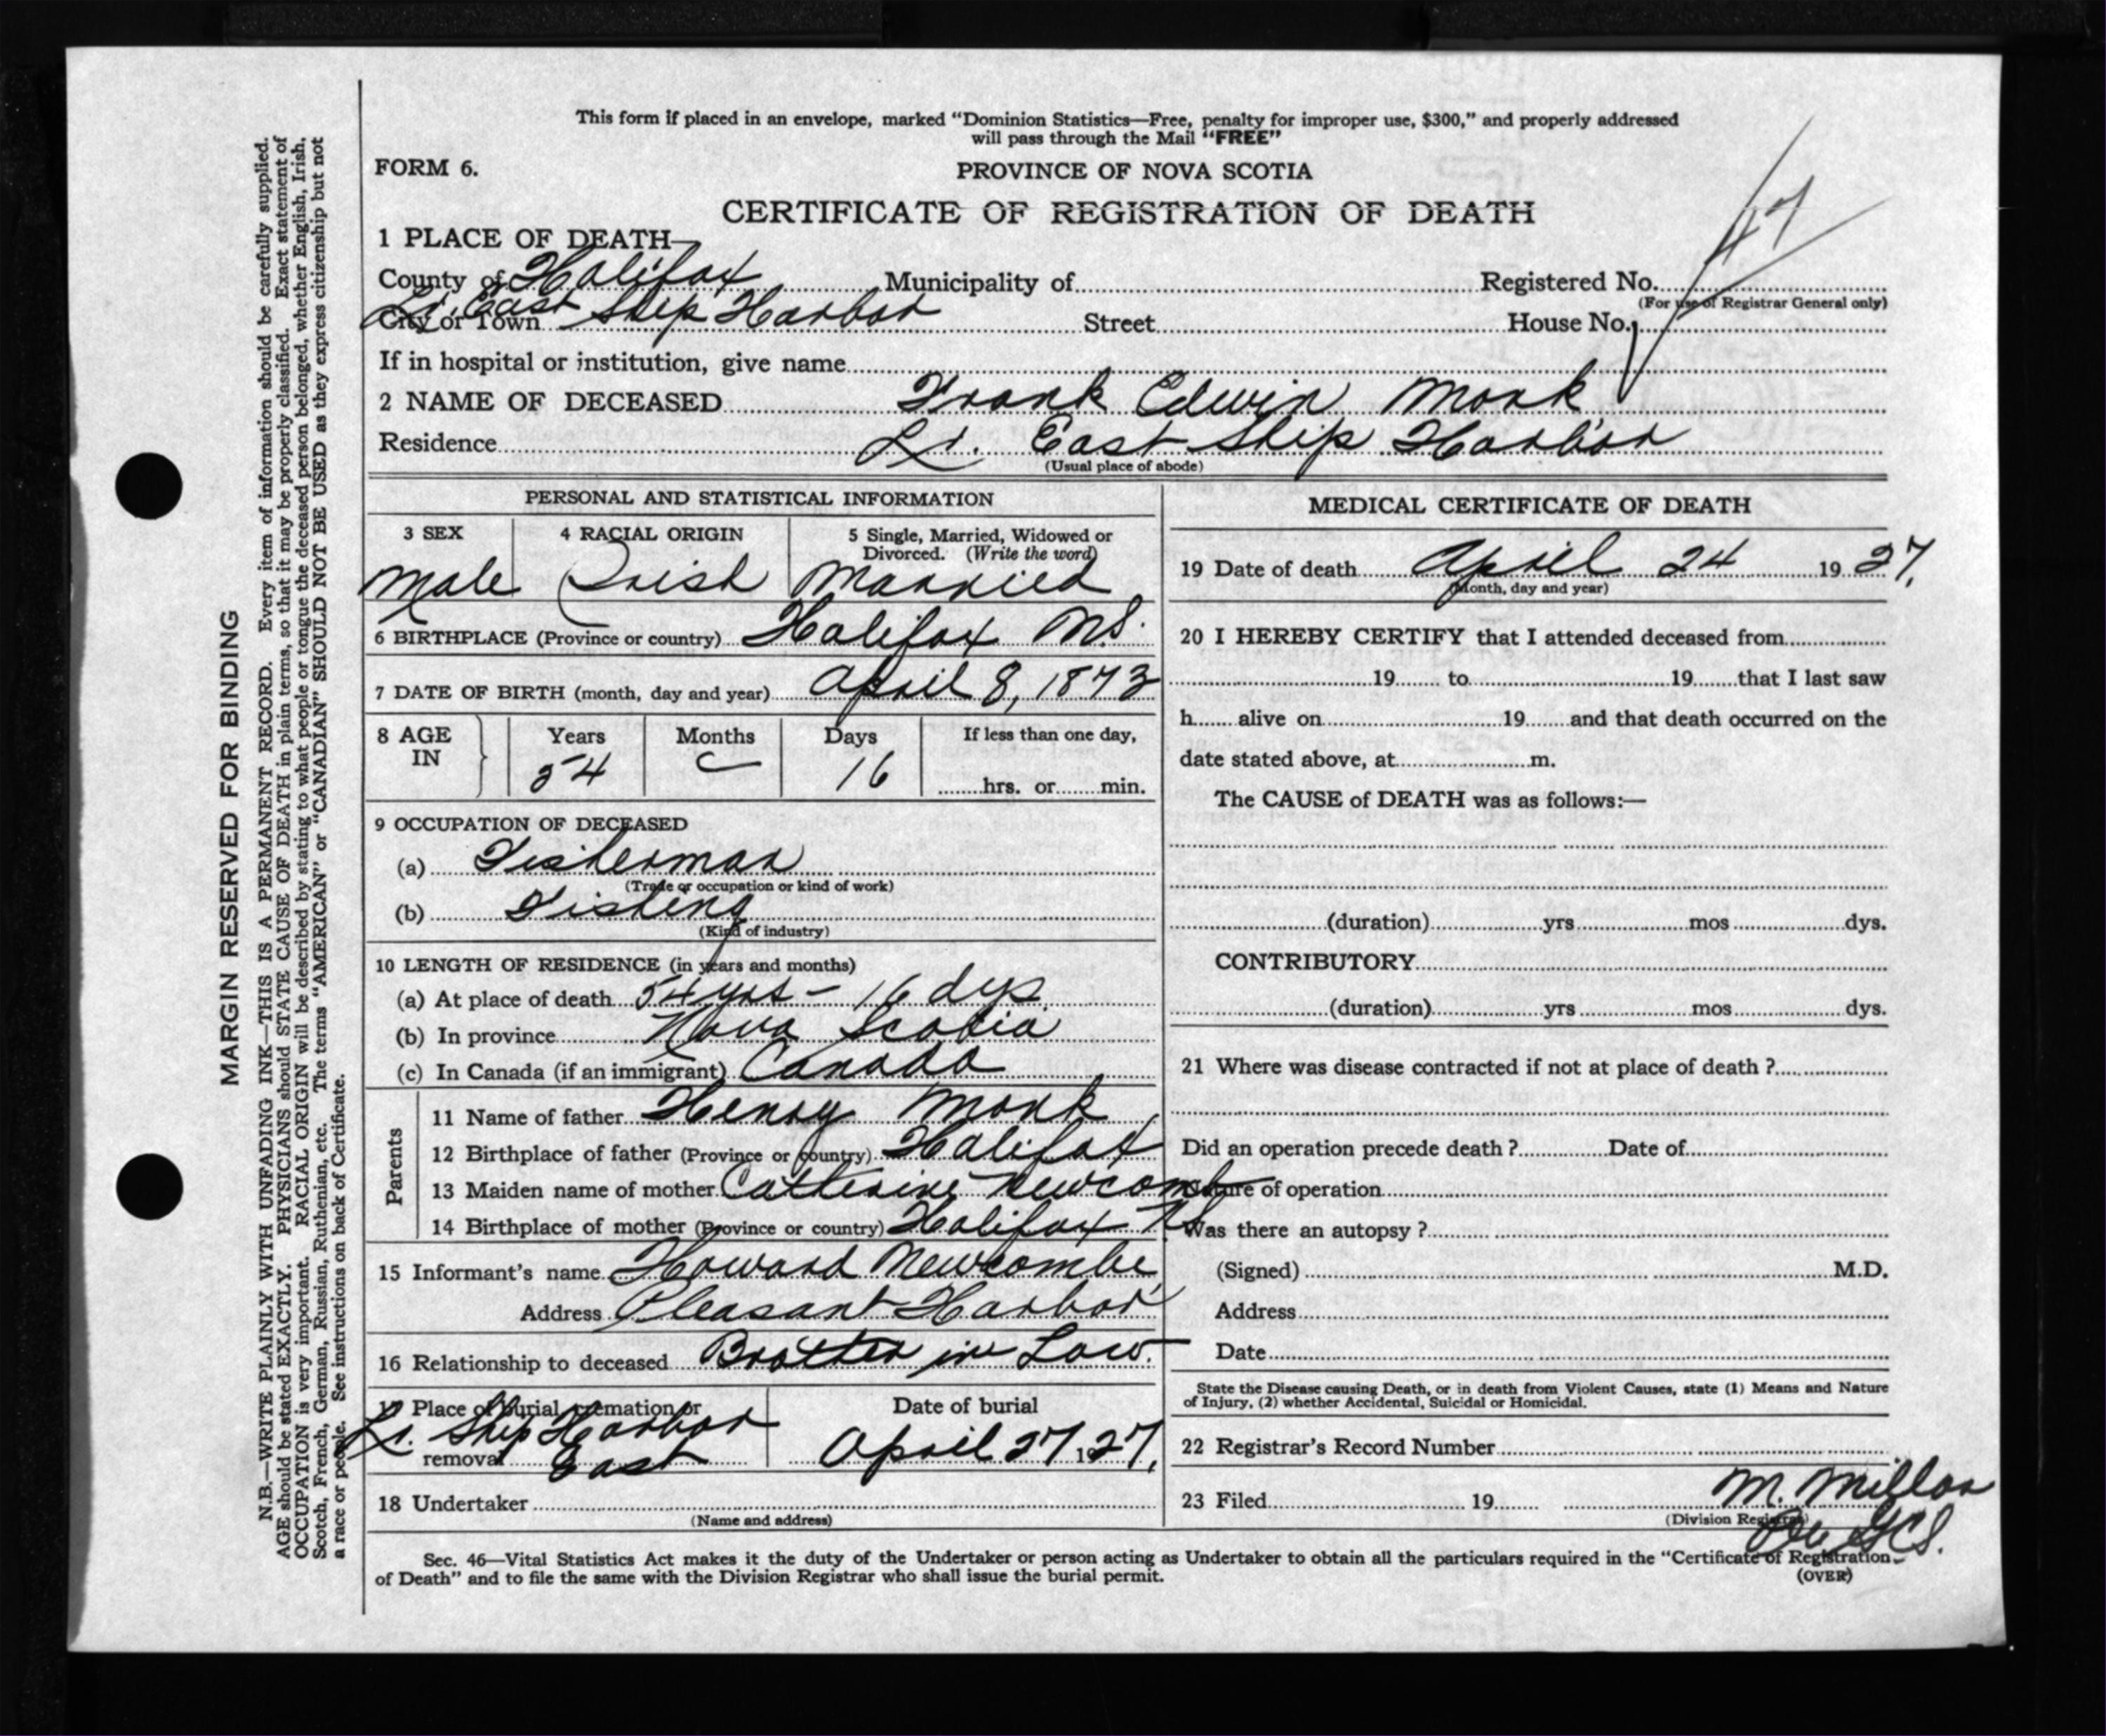 This form if placed in an envelope, marked "Dominion Statistics—Free, penalty for improper use, $300," and properly addressed
will pass through the Mail "FREE"
FORM 6.
PROVINCE OF NOVA SCOTIA
CERTIFICATE OF REGISTRATION OF DEATH
47
1 PLACE OF DEATH—
County of Halifax Municipality of Registered No.
(For use of Registrar General only)
City or Town Lr. East Ship Harbor Street House No.
If in hospital or institution, give name
2 NAME OF DECEASED Frank Edwin Monk
Residence Lr. East Ship Harbor
(Usual place of abode)
PERSONAL AND STATISTICAL INFORMATION
3 SEX 4 RACIAL ORIGIN 5 Single, Married, Widowed or
Divorced. (Write the word)
Male Irish Married
6 BIRTHPLACE (Province or country) Halifax N.S.
7 DATE OF BIRTH (month, day and year) April 8, 1873
8 AGE IN Years Months Days If less than one day,
54 16 hrs. or min.
9 OCCUPATION OF DECEASED
(a) Fisherman
(Trade or occupation or kind of work)
(b) Fishing
(Kind of industry)
10 LENGTH OF RESIDENCE (in years and months)
(a) At place of death 54 yrs – 16 dys.
(b) In province Nova Scotia
(c) In Canada (if an immigrant) Canada
Parents
11 Name of father Henry Monk
12 Birthplace of father (Province or country) Halifax
13 Maiden name of mother Catherine Newcomb
14 Birthplace of mother (Province or country) Halifax N.S.
15 Informant's name Howard Newcombe
Address Pleasant Harbor
16 Relationship to deceased Brother in Law.
17 Place of burial, cremation or Date of burial
removal Lr. Ship Harbor East April 27 1927.
18 Undertaker
(Name and address)
MEDICAL CERTIFICATE OF DEATH
19 Date of death April 24 1927.
(Month, day and year)
20 I HEREBY CERTIFY that I attended deceased from
19 to 19 that I last saw
h alive on 19 and that death occurred on the
date stated above, at m.
The CAUSE of DEATH was as follows:—
(duration) yrs mos dys.
CONTRIBUTORY
(duration) yrs mos dys.
21 Where was disease contracted if not at place of death ?
Did an operation precede death ? Date of
Nature of operation
Was there an autopsy ?
(Signed) M.D.
Address
Date
State the Disease causing Death, or in death from Violent Causes, state (1) Means and Nature
of Injury, (2) whether Accidental, Suicidal or Homicidal.
22 Registrar's Record Number
23 Filed 19 M. Millar
(Division Registrar)
G.C.S.
Sec. 46—Vital Statistics Act makes it the duty of the Undertaker or person acting as Undertaker to obtain all the particulars required in the "Certificate of Registration
of Death" and to file the same with the Division Registrar who shall issue the burial permit.
(OVER)
MARGIN RESERVED FOR BINDING
N.B.—WRITE PLAINLY WITH UNFADING INK—THIS IS A PERMANENT RECORD. Every item of information should be carefully supplied.
AGE should be stated EXACTLY. PHYSICIANS should STATE CAUSE OF DEATH in plain terms, so that it may be properly classified. Exact statement of
OCCUPATION is very important. RACIAL ORIGIN will be described by stating to what people or tongue the deceased person belonged, whether English, Irish,
Scotch, French, German, Russian, Ruthenian, etc. The terms "AMERICAN" or "CANADIAN" SHOULD NOT BE USED as they express citizenship but not
a race or people. See instructions on back of Certificate.